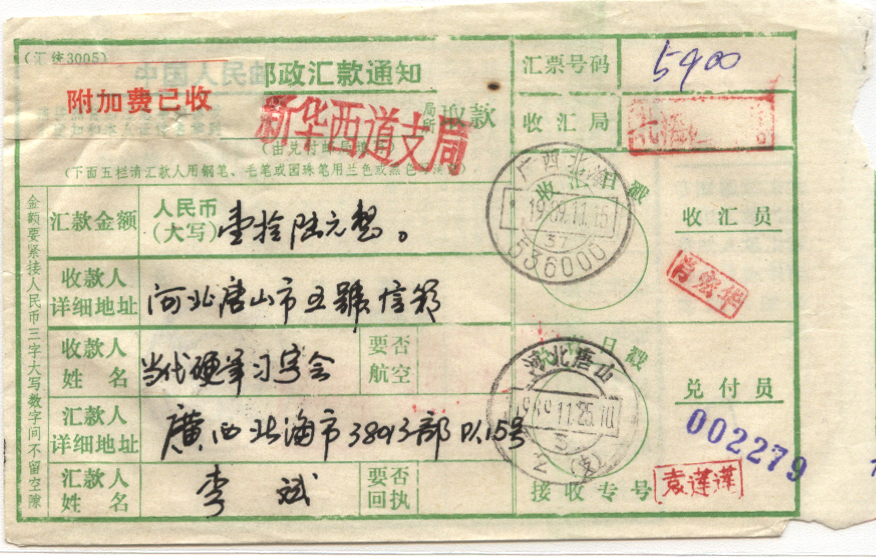 (汇统3005)
邮政汇款通知
附加费已收
新华西道支局
局所
收款
(由兑付邮局填写)
(下面五栏请汇款人用钢笔、毛笔或圆珠笔用兰色或黑色
汇票号码
5900
收汇局
汇款金额
人民币
(大写)
壹拾陆元整。
收款人
详细地址
河北唐山市五號信箱
收款人
姓名
当代硬笔习字会
要否
航空
汇款人
详细地址
廣西北海市38013部队15号
汇款人
姓名
李斌
要否
回执
金额要紧接人民币三字大写数字间不留空隙
收汇日戳
广西北海
1989.11.15
37
536000
收汇员
肖宏华
日戳
河北唐山
1989.11.25.10
3
2(支)
兑付员
002279
接收专号
袁莲莲